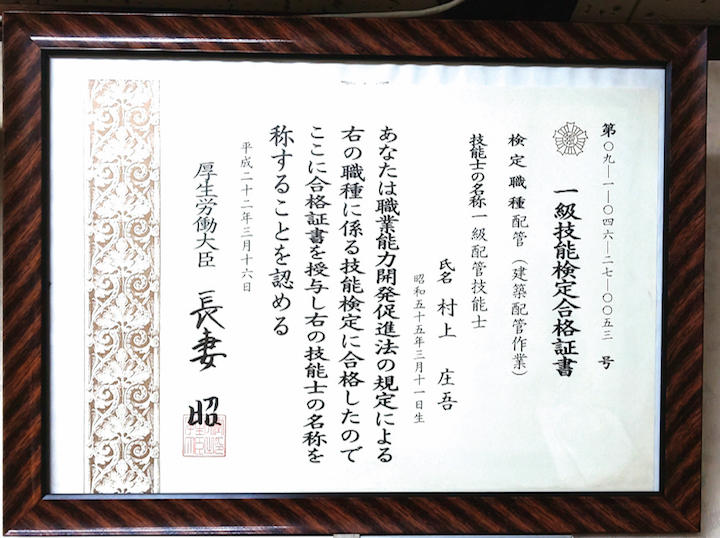 第〇九―一―〇四六―二七―〇〇五三号
一級技能検定合格証書
検定職種配管（建築配管作業）
技能士の名称一級配管技能士
氏名 村上 庄吾
昭和五十五年三月十一日生
あなたは職業能力開発促進法の規定による
右の職種に係る技能検定に合格したので
ここに合格証書を授与し右の技能士の名称を
称することを認める
平成二十二年三月十六日
厚生労働大臣 長妻 昭